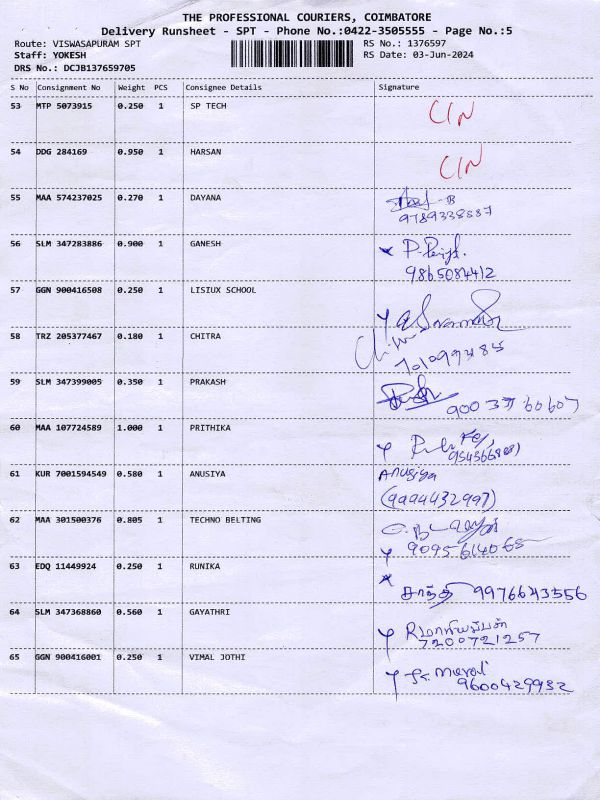 THE PROFESSIONAL COURIERS, COIMBATORE
Delivery Runsheet - SPT - Phone No.:0422-3505555 - Page No.:5
Route: VISWASAPURAM SPT
RS No.: 1376597
Staff: YOKESH
RS Date: 03-Jun-2024
DRS No.: DCJB137659705
S No Consignment No Weight PCS Consignee Details Signature
53 MTP 5073915 0.250 1 SP TECH CIN
54 DDG 284169 0.950 1 HARSAN CIN
55 MAA 574237025 0.270 1 DAYANA
9789338887
56 SLM 347283886 0.900 1 GANESH
9865084412
57 GGN 900416508 0.250 1 LISIUX SCHOOL
58 TRZ 205377467 0.180 1 CHITRA
59 SLM 347399005 0.350 1 PRAKASH
60 MAA 107724589 1.000 1 PRITHIKA
61 KUR 7001594549 0.580 1 ANUSIYA Anusiya
(9994432997)
62 MAA 301500376 0.805 1 TECHNO BELTING
9095614065
63 EDQ 11449924 0.250 1 RUNIKA
சாந்தி 9976643556
64 SLM 347368860 0.560 1 GAYATHRI
7200721257
65 GGN 900416001 0.250 1 VIMAL JOTHI
9600429932